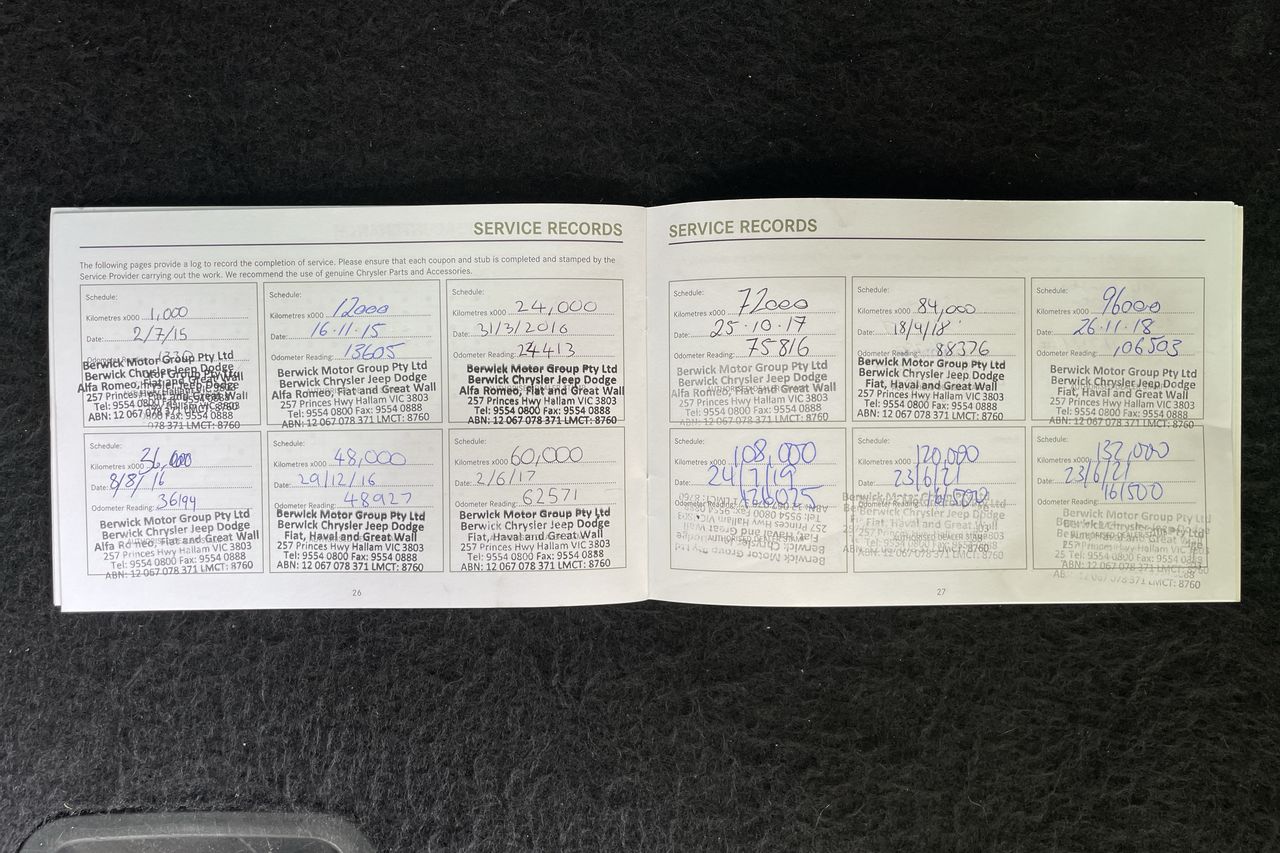 SERVICE RECORDS
The following pages provide a log to record the completion of service. Please ensure that each coupon and stub is completed and stamped by the
Service Provider carrying out the work. We recommend the use of genuine Chrysler Parts and Accessories.
Schedule:
Kilometres x000 1,000
Date: 2/7/15
Odometer Reading: 1330
Berwick Motor Group Pty Ltd
Berwick Chrysler Jeep Dodge
Alfa Romeo, Fiat and Great Wall
257 Princes Hwy Hallam VIC 3803
Tel: 9554 0800 Fax: 9554 0888
ABN: 12 067 078 371 LMCT: 8760
Schedule:
Kilometres x000 12000
Date: 16·11·15
Odometer Reading: 13605
Berwick Motor Group Pty Ltd
Berwick Chrysler Jeep Dodge
Alfa Romeo, Fiat and Great Wall
257 Princes Hwy Hallam VIC 3803
Tel: 9554 0800 Fax: 9554 0888
ABN: 12 067 078 371 LMCT: 8760
Schedule:
Kilometres x000 24,000
Date: 31/3/2016
Odometer Reading: 24413
Berwick Motor Group Pty Ltd
Berwick Chrysler Jeep Dodge
Alfa Romeo, Fiat and Great Wall
257 Princes Hwy Hallam VIC 3803
Tel: 9554 0800 Fax: 9554 0888
ABN: 12 067 078 371 LMCT: 8760
Kilometres x000 36,000
Date: 8/8/16
Odometer Reading: 36194
Berwick Motor Group Pty Ltd
Berwick Chrysler Jeep Dodge
Alfa Romeo, Fiat and Great Wall
257 Princes Hwy Hallam VIC 3803
Tel: 9554 0800 Fax: 9554 0888
ABN: 12 067 078 371 LMCT: 8760
Schedule:
Kilometres x000 48,000
Date: 29/12/16
Odometer Reading: 48927
Berwick Motor Group Pty Ltd
Berwick Chrysler Jeep Dodge
Fiat, Haval and Great Wall
257 Princes Hwy Hallam VIC 3803
Tel: 9554 0800 Fax: 9554 0888
ABN: 12 067 078 371 LMCT: 8760
Schedule:
Kilometres x000 60,000
Date: 2/6/17
Odometer Reading: 62571
Berwick Motor Group Pty Ltd
Berwick Chrysler Jeep Dodge
Fiat, Haval and Great Wall
257 Princes Hwy Hallam VIC 3803
Tel: 9554 0800 Fax: 9554 0888
ABN: 12 067 078 371 LMCT: 8760
26
SERVICE RECORDS
Schedule:
Kilometres x000 72000
Date: 25·10·17
Odometer Reading: 75816
Berwick Motor Group Pty Ltd
Berwick Chrysler Jeep Dodge
Alfa Romeo, Fiat and Great Wall
257 Princes Hwy Hallam VIC 3803
Tel: 9554 0800 Fax: 9554 0888
ABN: 12 067 078 371 LMCT: 8760
Schedule:
Kilometres x000 84,000
Date: 18/4/18
Odometer Reading: 88376
Berwick Motor Group Pty Ltd
Berwick Chrysler Jeep Dodge
Fiat, Haval and Great Wall
257 Princes Hwy Hallam VIC 3803
Tel: 9554 0800 Fax: 9554 0888
ABN: 12 067 078 371 LMCT: 8760
Schedule:
Kilometres x000 96000
Date: 26·11·18
Odometer Reading: 106503
Berwick Motor Group Pty Ltd
Berwick Chrysler Jeep Dodge
Fiat, Haval and Great Wall
257 Princes Hwy Hallam VIC 3803
Tel: 9554 0800 Fax: 9554 0888
ABN: 12 067 078 371 LMCT: 8760
Schedule:
Kilometres x000 108,000
Date: 24/7/19
Odometer Reading:
Berwick Motor Group Pty Ltd
Berwick Chrysler Jeep Dodge
Fiat, Haval and Great Wall
257 Princes Hwy Hallam VIC 3803
Tel: 9554 0800 Fax: 9554 0888
ABN: 12 067 078 371 LMCT: 8760
Schedule:
Kilometres x000 120,000
Date: 23/6/21
Odometer Reading: 161500
Berwick Motor Group Pty Ltd
Schedule:
Kilometres x000 132,000
Date: 23/6/21
Odometer Reading: 161500
Berwick Motor Group Pty Ltd
ABN: 12 067 078 371 LMCT: 8760
27